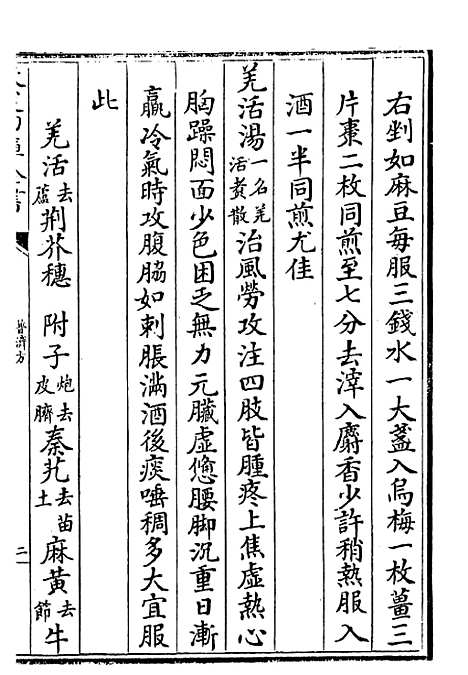 右剉如麻豆每服三錢水一大盞入烏梅一枚薑三
片棗二枚同煎至七分去滓入麝香少許稍熱服入
酒一半同煎尤佳
羗活湯一名羗活黄散治風勞攻注四肢皆腫疼上焦虛熱心
胸躁悶面少色困乏無力元臟虛憊腰脚沉重日漸
羸冷氣時攻腹脇如刺脹滿酒後痰唾稠多大宜服
此
羗活去蘆荆芥穗 附子炮去皮臍秦艽去苗土麻黄去節牛
普濟方
二